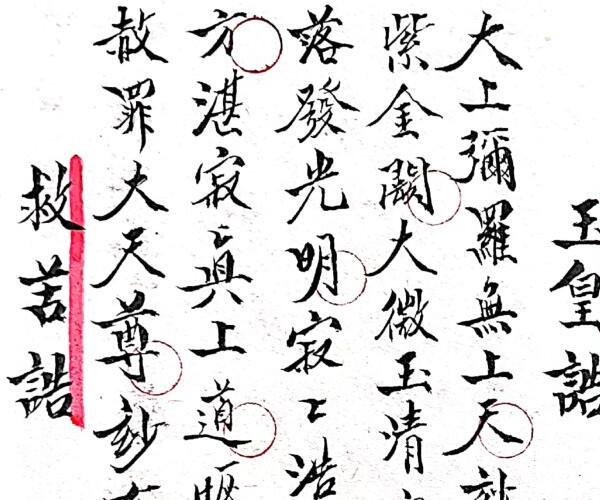 玉皇誥
大上彌羅無上天
紫金闕大微玉清
落發光明寂〻浩
方湛寂〻真上道
赦罪大天尊
救苦誥